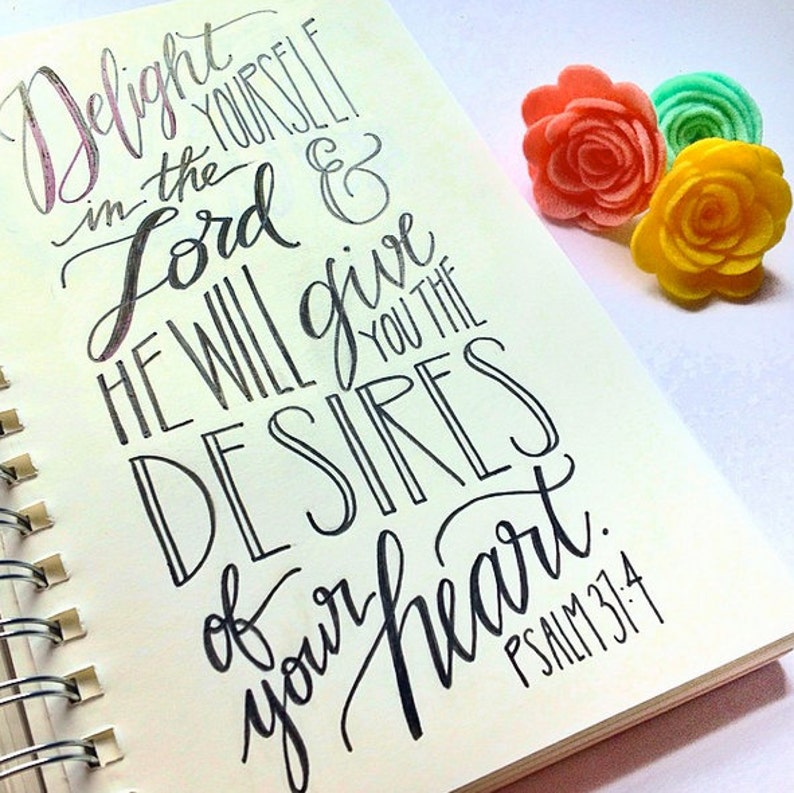 Delight YOURSELF
in the
Lord &
HE WILL give YOU THE
DESIRES
of your heart.
PSALM 37:4